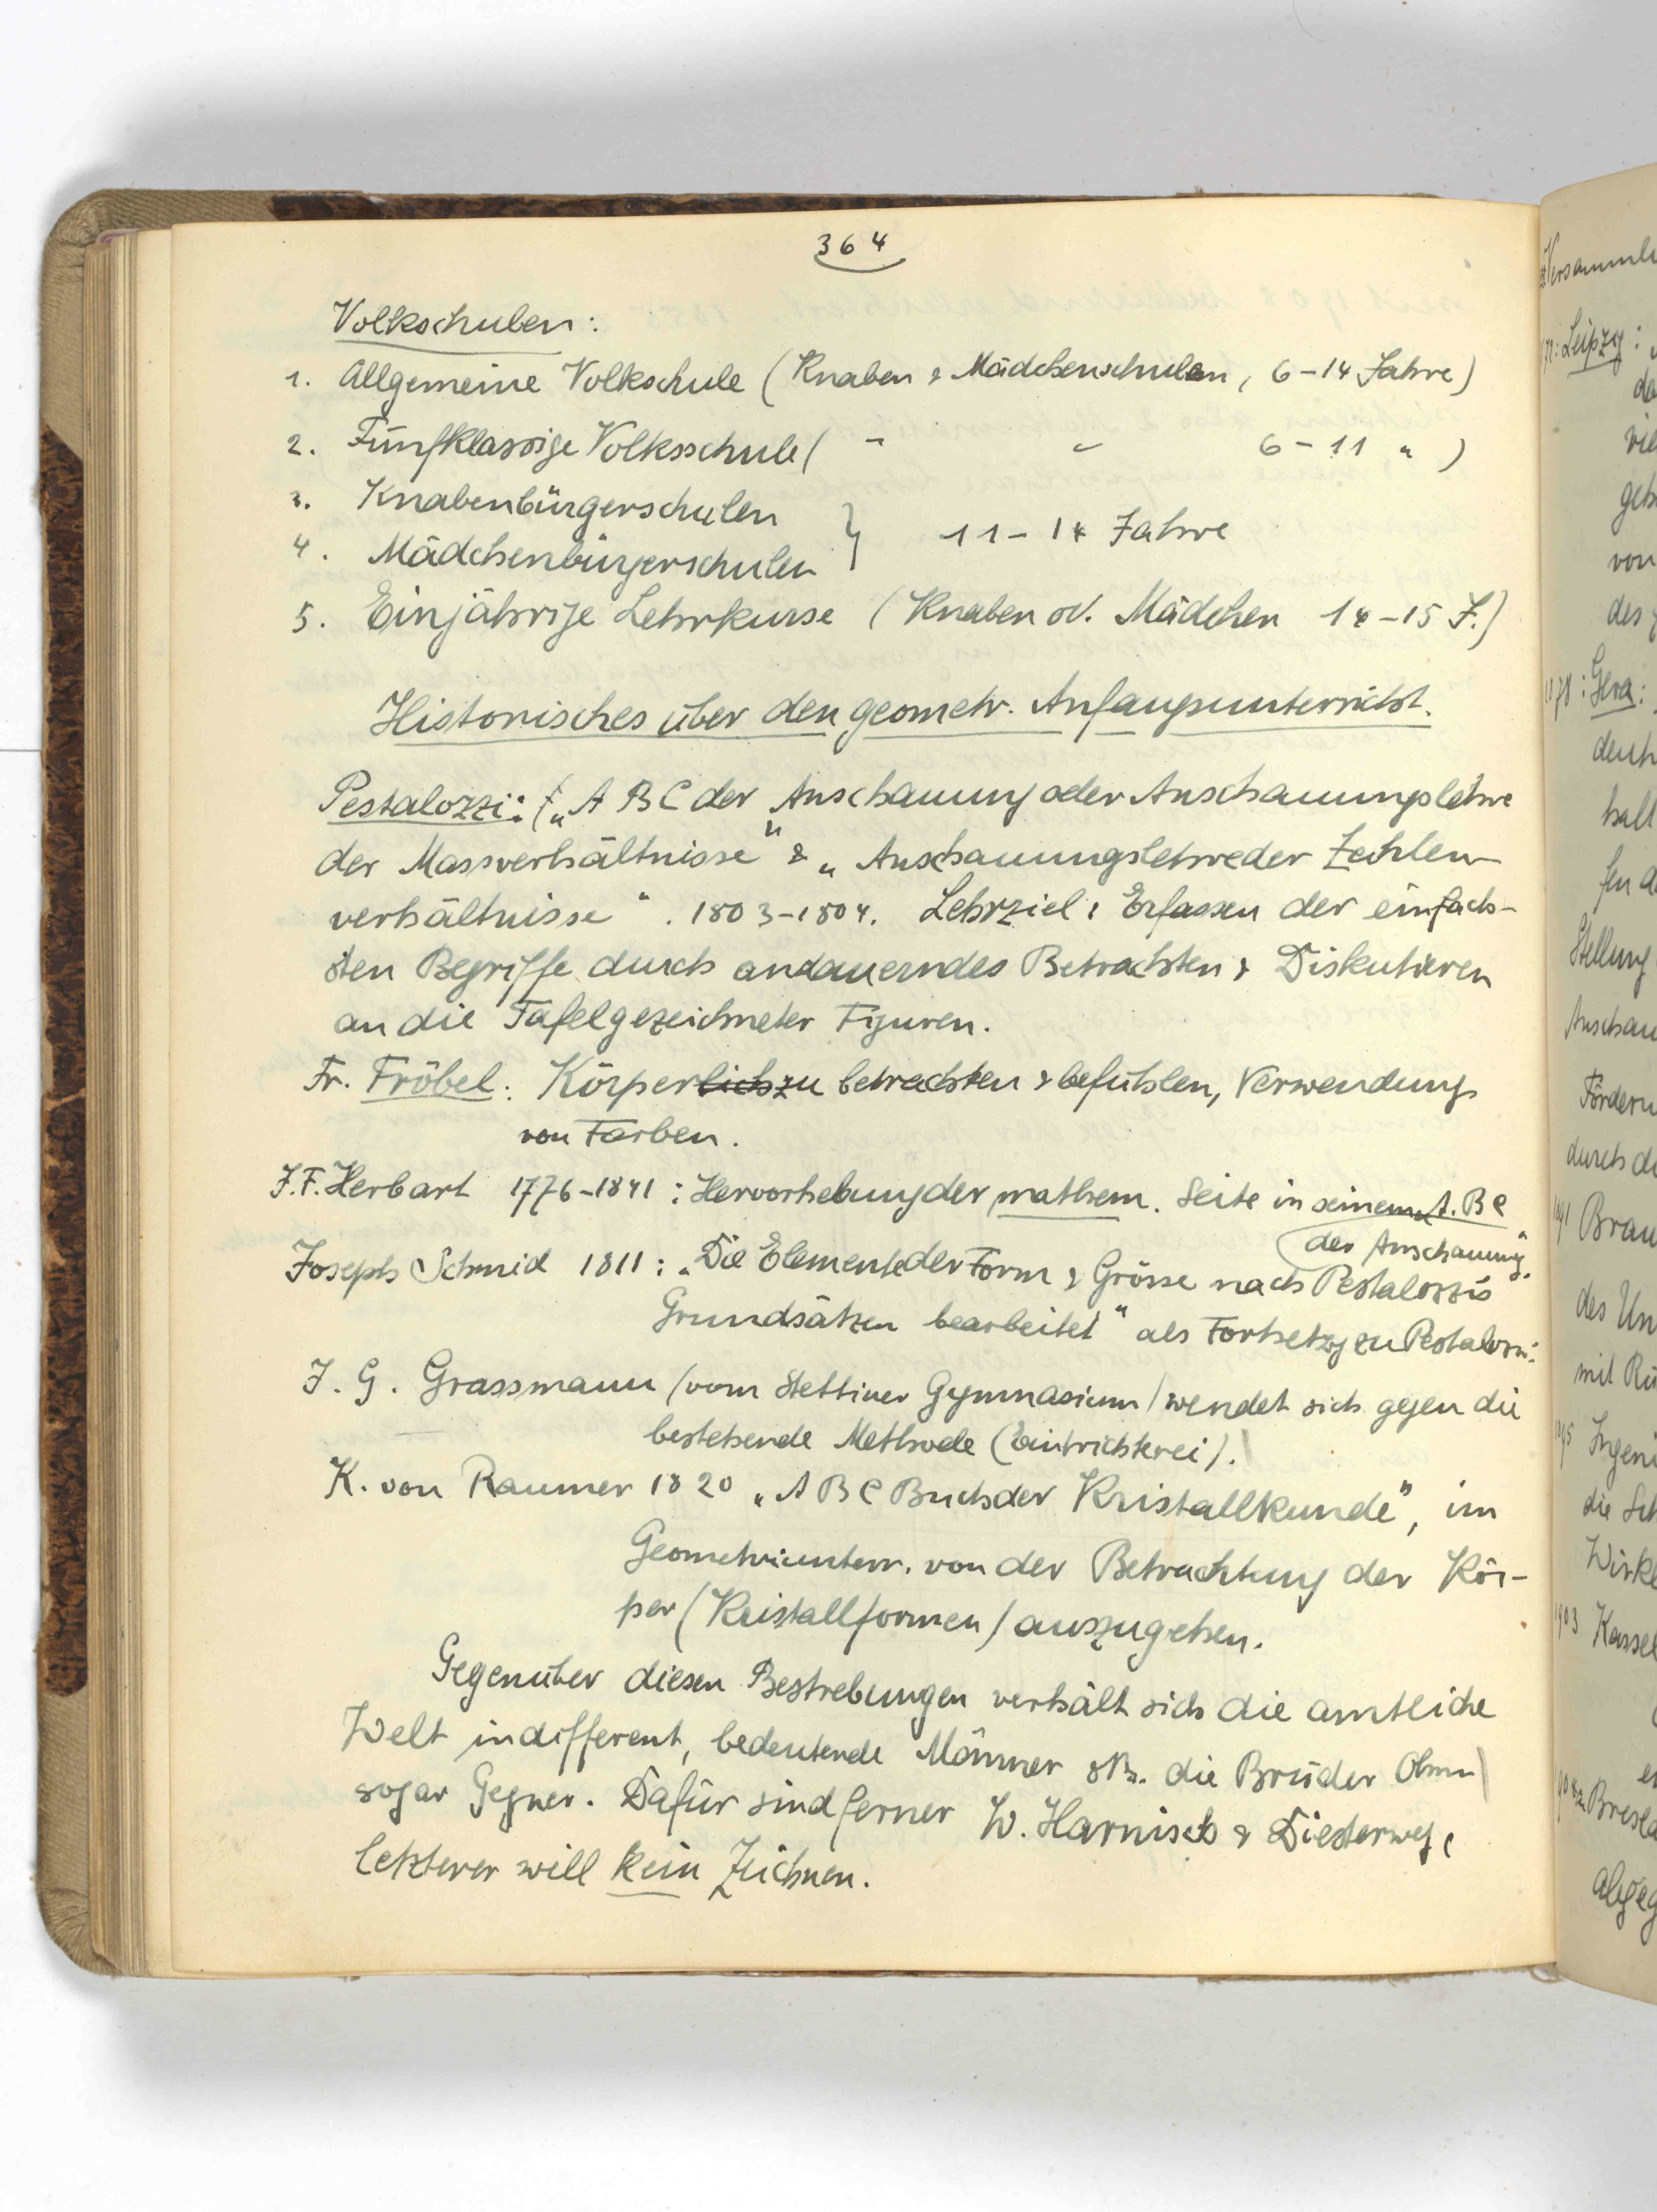 364
Volkschulen:
1. Allgemeine Volkschule (Knaben & Mädchenschulen, 6-14 Jahre)
2. Fünfklassige Volksschule ( " " 6-11 " )
3. Knabenbürgerschulen
4. Mädchenbürgerschulen } 11-14 Jahre
5. Einjährige Lehrkurse (Knaben od. Mädchen 14-15 J.)
Historisches über den geometr. Anfangsunterricht.
Pestalozzi: („A B C der Anschauung oder Anschauungslehre
der Massverhältnisse" & „Anschauungslehre der Zahlen-
verhältnisse". 1803-1804. Lehrziel: Erfassen der einfach-
sten Begriffe durch andauerndes Betrachten & Diskutieren
an die Tafel gezeichneter Figuren.
Fr. Fröbel: Körperlich zu betrachten & befühlen, Verwendung
von Farben.
J.F. Herbart 1776-1841: Hervorhebung der mathem. Seite in seinem A.BC
der Anschauung"
Joseph Schmid 1811: „Die Elemente der Form & Grösse nach Pestalozzis
Grundsätzen bearbeitet" als Fortsetzg zu Pestalozzi.
J. G. Grassmann (vom Stettiner Gymnasium) wendet sich gegen die
bestehende Methode (Eintrichterei).
K. von Raumer 1820 „A B C Buch der Kristallkunde", im
Geometrieunterr. von der Betrachtung der Kör-
per (Kristallformen) auszugehen.
Gegenüber diesen Bestrebungen verhält sich die amtliche
Welt indifferent, bedeutende Männer die Brüder Ohm
sogar Gegner. Dafür sind ferner W. Harnisch & Diesterweg,
letzterer will kein Zeichnen.
Leipzig:
viel
von
des
1878: Gera:
halt
Stellung
Anschau
Fördern
durch
Brau
des Un
mit
Ingeni
die Sch
Wirk
1903 Kassel
Bresl